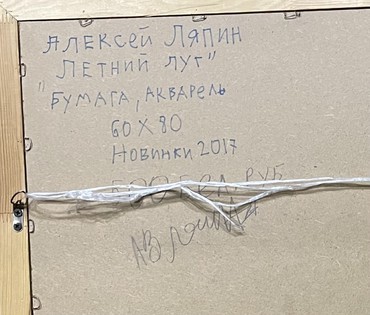 Алексей Ляпин
Летний луг"
"Бумага, акварель
60x80
Новинки 2017